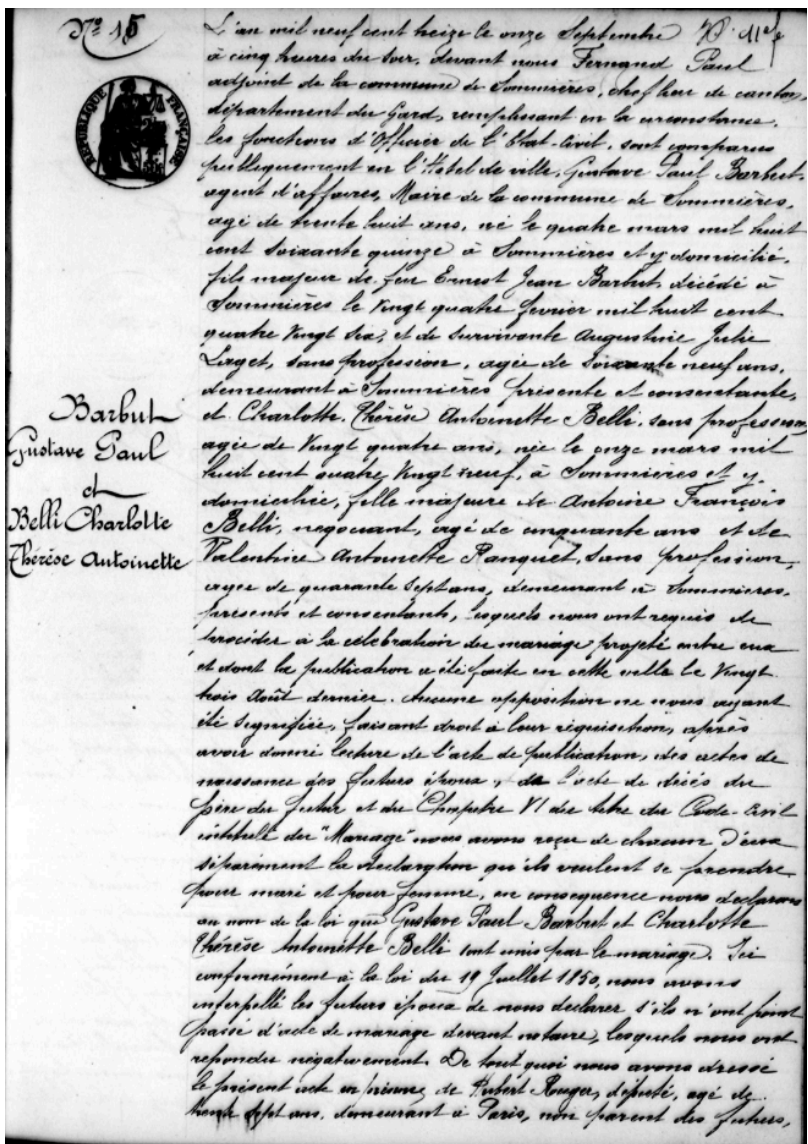 Nº 15
RÉPUBLIQUE FRANÇAISE
Barbut
Gustave Paul
et
Belli Charlotte
Thérèse Antoinette
L'an mil neuf cent treize le onze Septembre
à cinq heures du soir, devant nous Fernand Paul
adjoint de la commune de Sommières, chef lieu de canton,
département du Gard, remplissant en la circonstance
les fonctions d'Officier de l'Etat-Civil, sont comparus
publiquement en l'Hotel de ville, Gustave Paul Barbut,
agent d'affaires, Maire de la commune de Sommières,
agé de trente huit ans, né le quatre mars mil huit
cent soixante quinze à Sommières et y domicilié,
fils majeur de feu Ernest Jean Barbut, décédé à
Sommières le vingt quatre fevrier mil huit cent
quatre vingt six, et de survivante Augustine Julie
Laget, sans profession, agée de soixante neuf ans,
demeurant à Sommières présente et consentante,
et Charlotte Thérèse Antoinette Belli, sans profession,
agée de vingt quatre ans, née le onze mars mil
huit cent quatre vingt neuf, à Sommières et y
domiciliée, fille majeure de Antoine François
Belli, négociant, agé de cinquante ans et de
Valentine Antoinette Ranquet, sans profession,
agée de quarante sept ans, demeurant à Sommières,
présents et consentants, lesquels nous ont requis de
procéder à la célébration du mariage projeté entre eux
et dont la publication a été faite en cette ville le vingt
trois Août dernier. Aucune opposition ne nous ayant
été signifiée, faisant droit à leur réquisition, après
avoir donné lecture de l'acte de publication, des actes de
naissance des futurs époux, de l'acte de décès du
père du futur et du Chapitre VI du titre du Code-Civil
intitulé du "Mariage" nous avons reçu de chacun d'eux
séparément la déclaration qu'ils veulent se prendre
pour mari et pour femme, en conséquence nous déclarons
au nom de la loi que Gustave Paul Barbut et Charlotte
Thérèse Antoinette Belli sont unis par le mariage. Ici
conformément à la loi du 19 Juillet 1850, nous avons
interpellé les futurs époux de nous déclarer s'ils n'ont point
passé d'acte de mariage devant notaire, lesquels nous ont
répondu négativement. De tout quoi nous avons dressé
le présent acte en présence de Hubert Rouger, député, agé de
trente sept ans, demeurant à Paris, non parent des futurs,